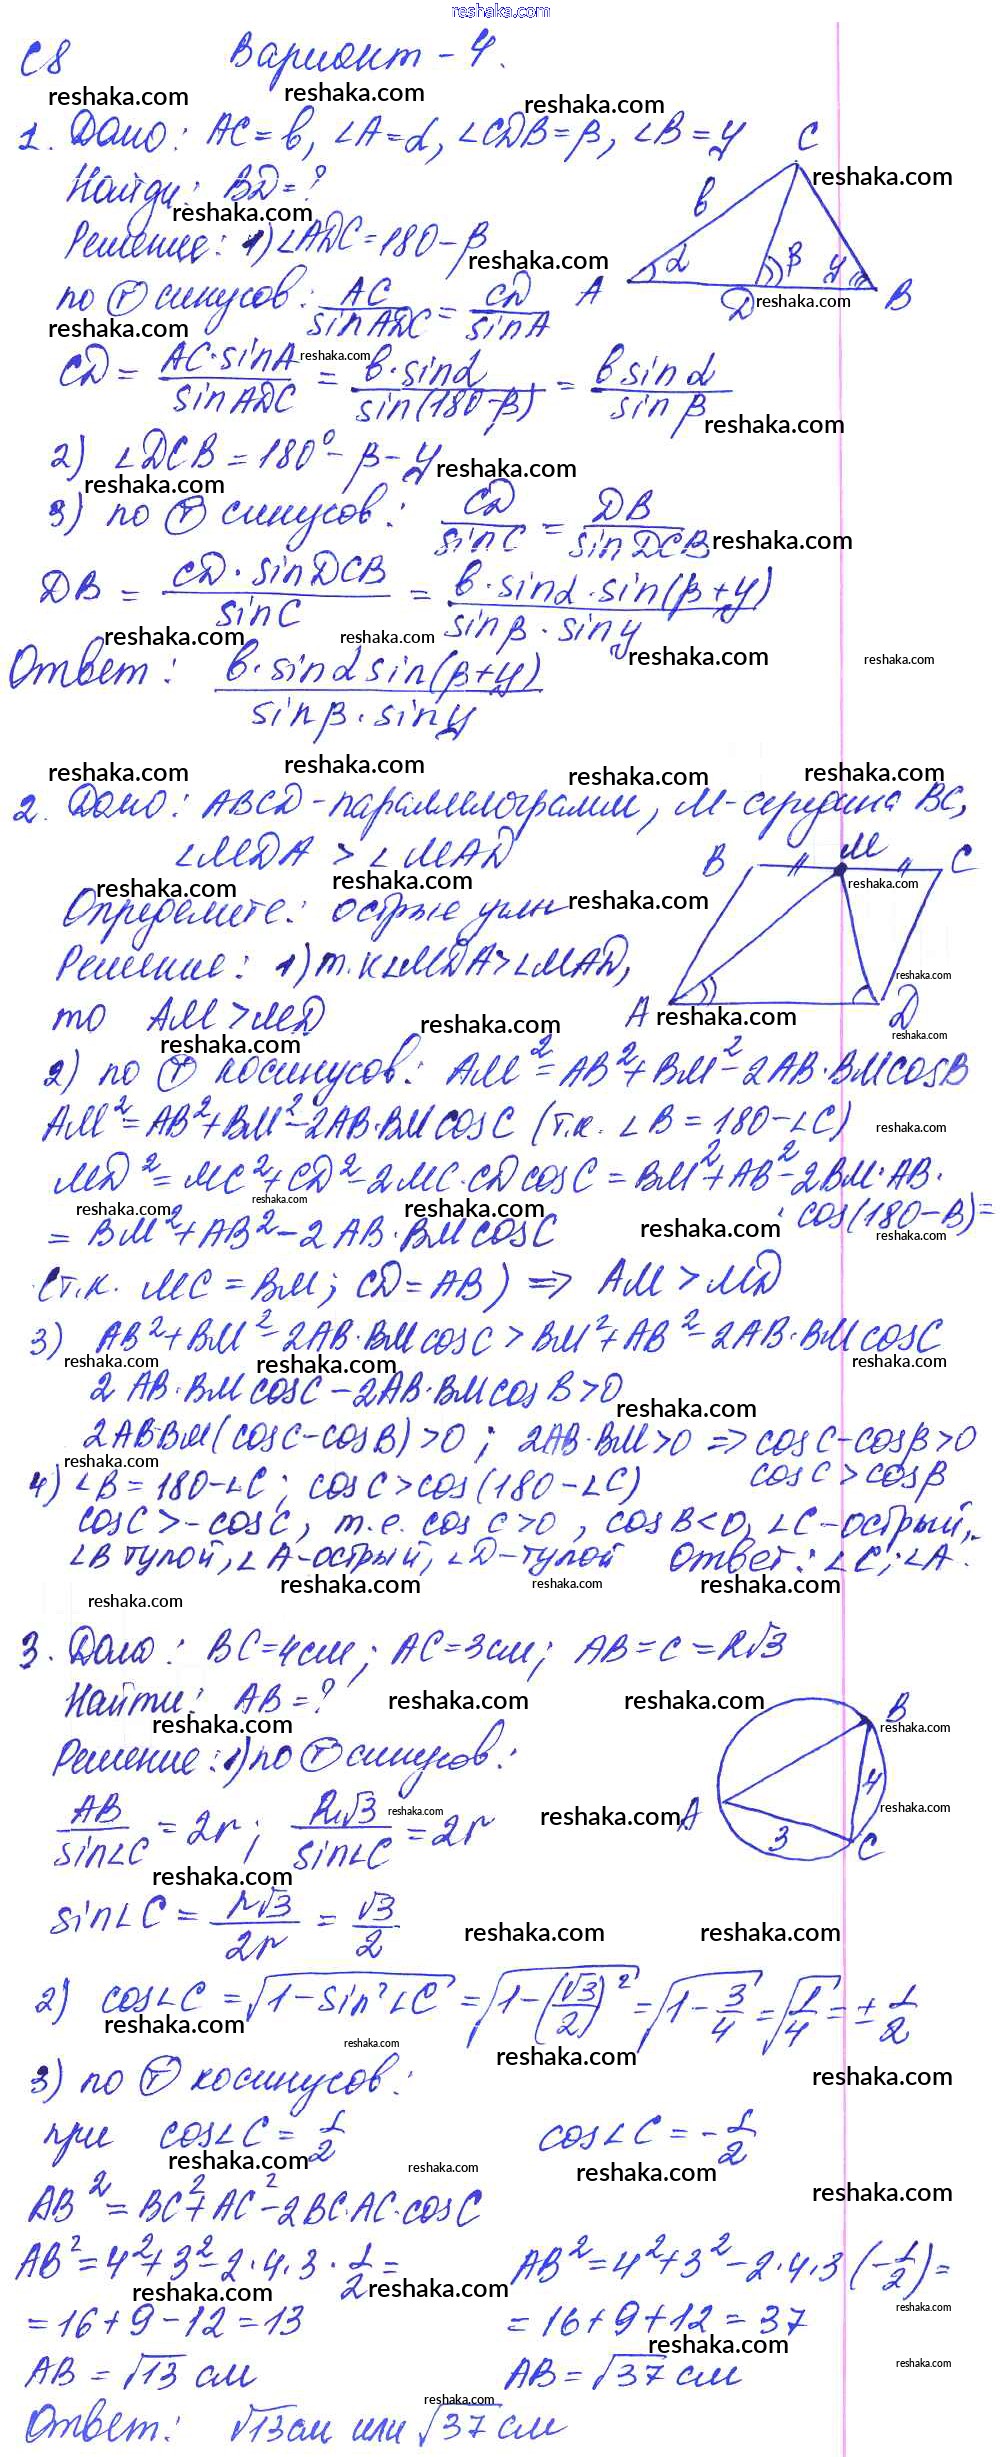 reshaka.com
С8 Вариант - 4.
1. Дано: AC = b, ∠A = α, ∠CDB = β, ∠B = γ
Найти: BD = ?
Решение: 1) ∠ADC = 180 - β
по Т синусов: AC/sin ADC = CD/sin A
CD = AC·sin A/sin ADC = b·sin α/sin(180-β) = b sin α/sin β
2) ∠DCB = 180° - β - γ
3) по Т синусов: CD/sin C = DB/sin DCB
DB = CD·sin DCB/sin C = b·sin α·sin(β+γ)/sin β·sin γ
Ответ: b·sin α sin(β+γ)/sin β·sin γ
C
b
α β γ
A D B
2. Дано: ABCD - параллелограмм, M - середина BC,
∠MDA > ∠MAD
Определите: острые углы
Решение: 1) т.к ∠MDA > ∠MAD,
то AM > MD
B M C
A D
2) по Т косинусов: AM² = AB² + BM² - 2AB·BM cos B
AM² = AB² + BM² - 2AB·BM cos C (т.к. ∠B = 180 - ∠C)
MD² = MC² + CD² - 2MC·CD cos C = BM² + AB² - 2BM·AB·
· cos(180 - B) =
= BM² + AB² - 2AB·BM cos C
(т.к. MC = BM; CD = AB) ⇒ AM > MD
3) AB² + BM² - 2AB·BM cos C > BM² + AB² - 2AB·BM cos C
2AB·BM cos C - 2AB·BM cos B > 0
2AB BM(cos C - cos B) > 0; 2AB·BM > 0 ⇒ cos C - cos β > 0
cos C > cos β
4) ∠B = 180 - ∠C; cos C > cos(180 - ∠C)
cos C > - cos C, т.е. cos C > 0, cos B < 0, ∠C - острый,
∠B тупой, ∠A - острый, ∠D - тупой Ответ: ∠C; ∠A.
3. Дано: BC = 4 см; AC = 3 см; AB = c = R√3
Найти: AB = ?
Решение: 1) по Т синусов:
AB/sin∠C = 2r; R√3/sin∠C = 2r
sin∠C = r√3/2r = √3/2
B
4
A 3 C
2) cos∠C = √(1 - sin²∠C) = √(1 - (√3/2)²) = √(1 - 3/4) = √(1/4) = ± 1/2
3) по Т косинусов:
при cos∠C = 1/2 cos∠C = - 1/2
AB² = BC² + AC² - 2BC·AC·cos C
AB² = 4² + 3² - 2·4·3·1/2 = AB² = 4² + 3² - 2·4·3(-1/2) =
= 16 + 9 - 12 = 13 = 16 + 9 + 12 = 37
AB = √13 см AB = √37 см
Ответ: √13 см или √37 см